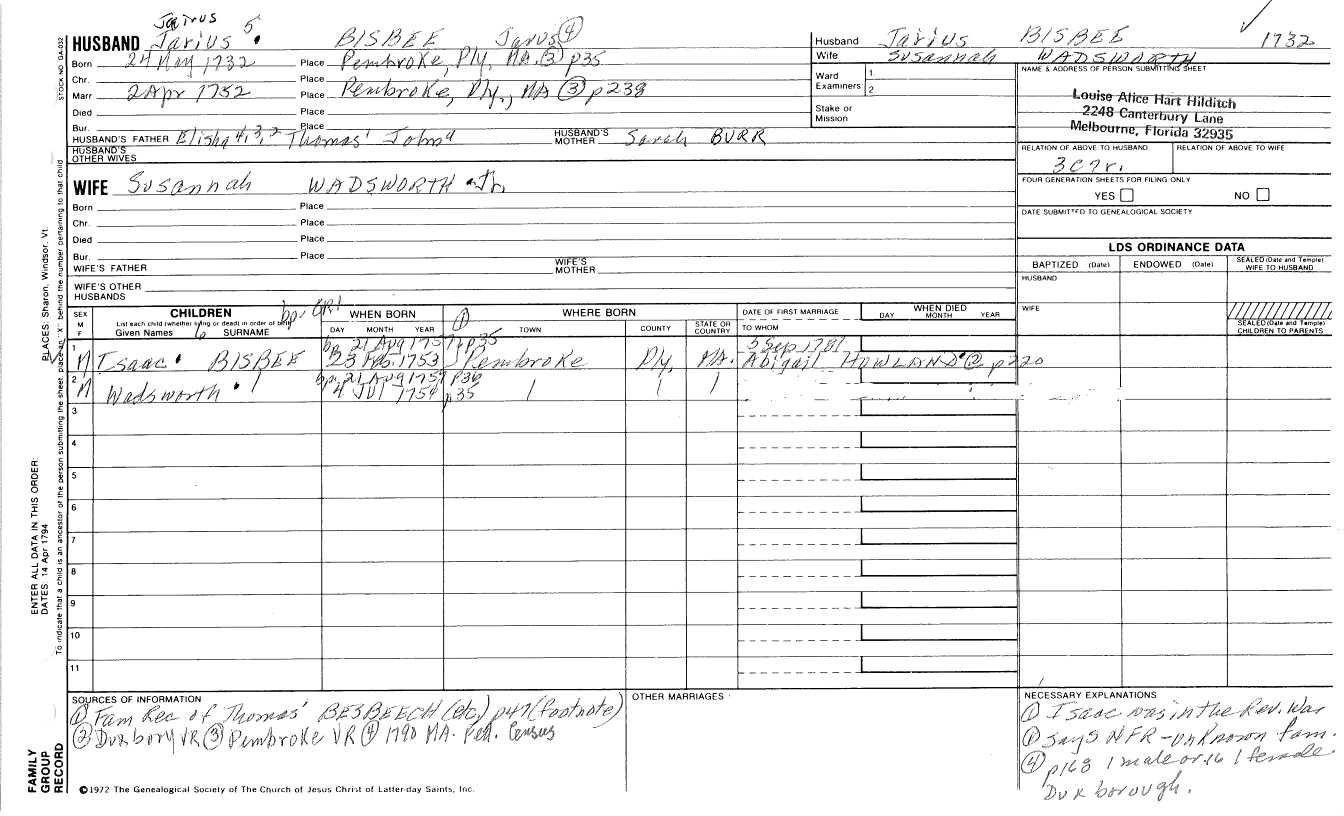 Jairus 5
HUSBAND Jarius BISBEE Jarus ④
Born 24 May 1732 Place Pembroke, Ply, MA. ③ p35
Chr. Place
Marr 2 Apr 1752 Place Pembroke, Ply., MA ③ p238
Died Place
Bur. Place
HUSBAND'S FATHER Elisha 4,3,2 Thomas' John HUSBAND'S MOTHER Sarah BURR
HUSBAND'S OTHER WIVES
WIFE Susannah WADSWORTH
Born Place
Chr. Place
Died Place
Bur. Place
WIFE'S FATHER WIFE'S MOTHER
WIFE'S OTHER HUSBANDS
Husband Jarius BISBEE 1732
Wife Susannah WADSWORTH
Ward 1
Examiners 2
Stake or Mission
NAME & ADDRESS OF PERSON SUBMITTING SHEET
Louise Alice Hart Hilditch
2248 Canterbury Lane
Melbourne, Florida 32935
RELATION OF ABOVE TO HUSBAND RELATION OF ABOVE TO WIFE
3C7r.
FOUR GENERATION SHEETS FOR FILING ONLY
YES NO
DATE SUBMITTED TO GENEALOGICAL SOCIETY
LDS ORDINANCE DATA
BAPTIZED (Date) ENDOWED (Date) SEALED (Date and Temple) WIFE TO HUSBAND
HUSBAND
WIFE
SEALED (Date and Temple) CHILDREN TO PARENTS
SEX M F
CHILDREN
List each child (whether living or dead) in order of birth
Given Names SURNAME
WHEN BORN
DAY MONTH YEAR
①
WHERE BORN
TOWN COUNTY STATE OR COUNTRY
DATE OF FIRST MARRIAGE
TO WHOM
WHEN DIED
DAY MONTH YEAR
1 bp. 21 Aug 1757 p35 5 Sep 1781
M Isaac BISBEE 23 Feb. 1753 Pembroke Ply, MA. Abigail HOWLAND ② p220
2 bp. 21 Aug 1757 p36
M Wadsworth 4 Jul 1754 p35
3
4
5
6
7
8
9
10
11
SOURCES OF INFORMATION
① Fam Rec of Thomas' BESBEECH (etc.) p47 (footnote)
② Duxbory VR ③ Pembroke VR ④ 1790 MA. Fed. Census
OTHER MARRIAGES
NECESSARY EXPLANATIONS
① Isaac was in the Rev. War
① says NFR - unknown fam.
④ p168 1 male or 16 1 female
Duxborough.
©1972 The Genealogical Society of The Church of Jesus Christ of Latter-day Saints, Inc.
STOCK NO GA-032
PLACES: Sharon, Windsor, Vt.
To indicate that a child is an ancestor of the person submitting the sheet, place an "X" behind the number pertaining to that child
ENTER ALL DATA IN THIS ORDER:
DATES: 14 Apr 1794
FAMILY
GROUP
RECORD